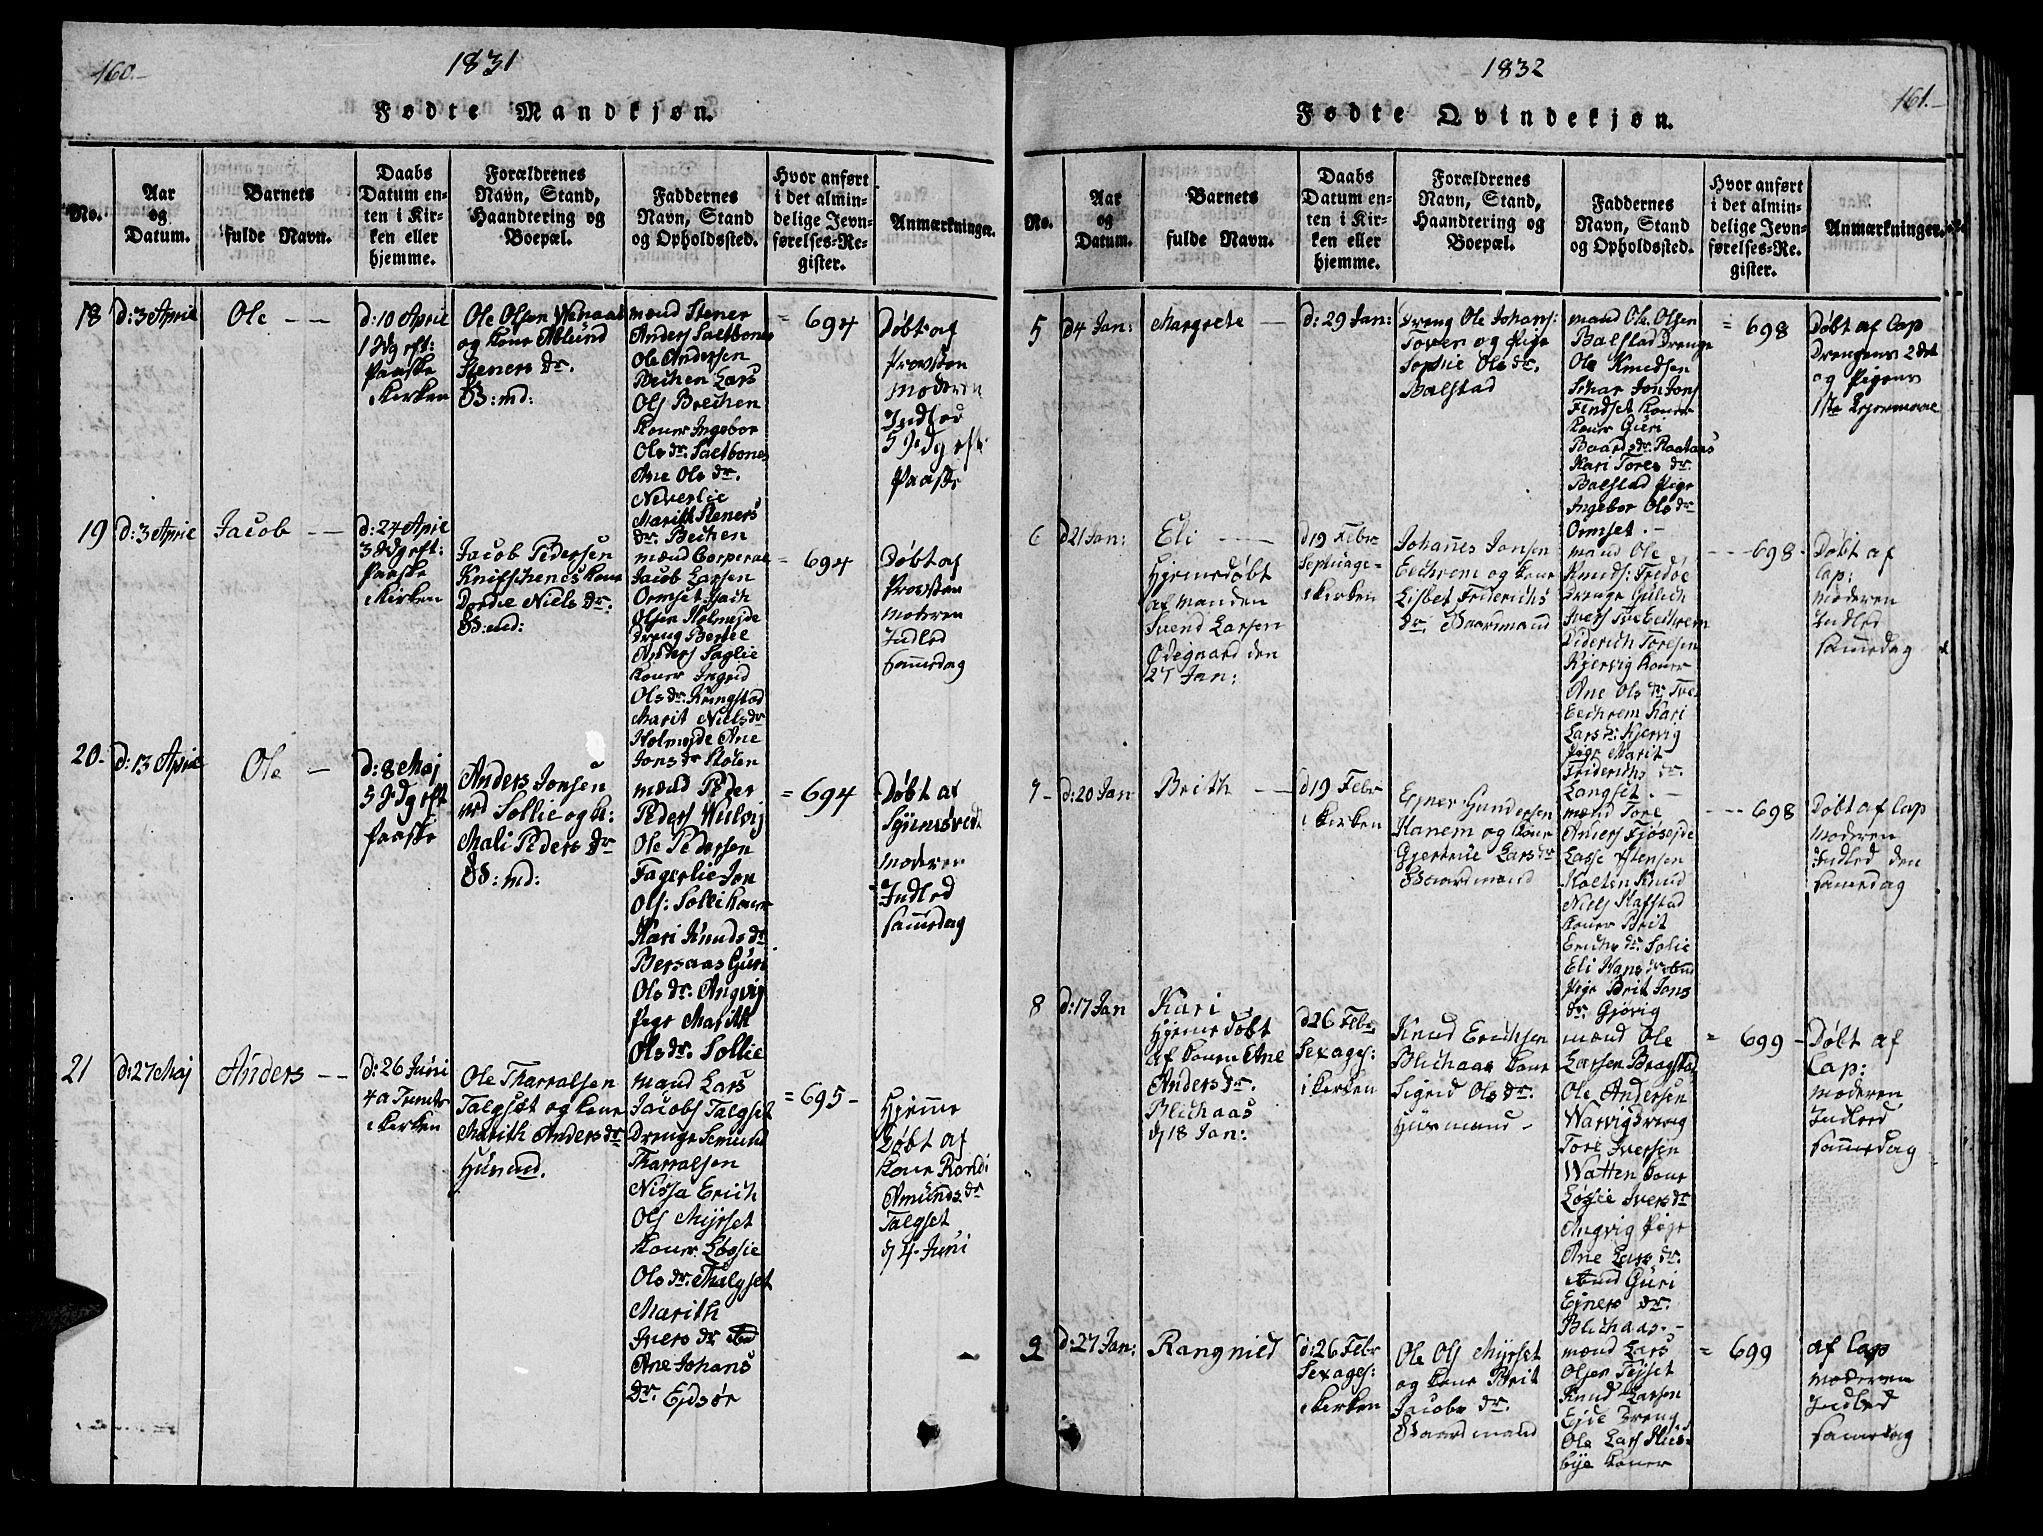 160.
1831
Fødte Mandkjøn.
No.
Aar
og
Datum.
Barnets
fulde Navn.
Daabs
Datum en-
ten i Kir-
ken eller
hjemme.
Forældrenes
Navn, Stand,
Haandtering og
Boepæl.
Faddernes
Navn, Stand
og Opholdssted.
Hvor anført
i det almin-
delige Jevn-
førelses-Re-
gister.
Anmærkninger.
18
d: 3 April
Ole
d: 10 April
1 Sdg eft:
Paaske
i Kirken
Ole Olsen
og Kone
Steners dr.
G: md:
mænd Stener
Anders Saltbones
Ole Andersen
Bechen Lars
Ols Brechen
Koner Ingebor
Ols dr. Saltbones
Ane Ols dr.
Neverlie
Marith Steners
dr. Bechen
= 694
Døbt af
Provsten
Moderen
Indled
5 Sdg eft:
Paaske
19
d: 3 April
Jacob
d: 24 April
3 Sdg eft:
Paaske
i Kirken
Jacob Pedersen
Knifschenes Kone
Dordie Niels dr.
G: md:
mænd Corporal
Jacob Larsen
Ormset
Olsen Holmejde
Dreng Bertel
Anders Saglie
Koner Ingrid
Ols dr. Kringstad
Marit Niels dr
Holmejde Ane
Jons dr Stolen
= 694
Døbt af
Provsten
Moderen
Indled
samedag
20
d: 13 April
Ole
d: 8 Maj
5 Sdg eft
Paaske
Anders Jonsen
Sollie og K:
Mali Peders dr
G: md:
mænd Peder
Peders Wulvig
Ole Pedersen
Fagerlie Jon
Ols: Solli Koner
Kari Knuds dr
Bersaas Guri
Ols dr. Angvig
Pige Marith
Ols dr. Sollie
= 694
Døbt af
Moderen
Indled
samedag
21
d: 27 Maj
Anders
d: 26 Juni
4 a Trinit:
i Kirken
Ole Tharralsen
Talgset og Kone
Marith Anders dr
Husmd.
mænd Lars
Jacobs Talgset
Drenge Semund
Tharralsen
Nissa Erich
Ols Myrset
Koner Løssie
Ols dr. Thalgset
Marith
Ivers dr
Ane Johans
dr. Ejdsør
= 695
Hjemme
Døbt af
Kone Randi
Amunds dr
Talgset
d 4 Juni
1832
161.
Fødte Qvindekjøn.
No.
Aar
og
Datum.
Barnets
fulde Navn.
Daabs
Datum en-
ten i Kir-
ken eller
hjemme.
Forældrenes
Navn, Stand,
Haandtering og
Boepæl.
Faddernes
Navn, Stand
og Opholdssted.
Hvor anført
i det almin-
delige Jevn-
førelses-Re-
gister.
Anmærkninger.
5
d 4 Jan:
Margrete
d: 29 Jan:
Dreng Ole Johans:
Toven og Pige
Sophie Ols dr.
Balstad
mænd Ole Olsen
Balstad Drenge
Ole Knudsen
Jon Jons
Findset
Koner Guri
Baards dr. Raataas
Kari Tores dr.
Balstad Pige
Ingebor Ols dr
Ormset.
= 698
Døbt af Cap
Drengens 2det
og Pigens
1ste Lejermaal
6
d 21 Jan:
Eli
Hjemedøbt
af Manden
Svend Larsen
Ødegaard den
27 Jan:
d 19 Febr
Septuage-
i Kirken
Johannes Jonsen
Eechrem og Kone
Lisbet Friderichs
dr. Gaardmand
mænd Ole
Knuds: Fredøe
Drenge Gulich
Ivers Eechrem
Diderich Toresen
Kjervig Koner
Ane Ols dr
Eechrem Kari
Lars dr: Kjervig
Pige Marit
Friderichs dr.
Langset.
698
Døbt af
Cap:
Moderen
Indled
samedag
7
d: 20 Jan
Brith
d 19 Febr
i Kirken
Ejner Gundersen
Hanem og Kone
Gjertrue Lars dr
Gaardmand
mænd Tore
Anders Fjøsejde
Lasse Stensen
Holten Knud
Niels Hafstad
Koner Brit
Erichs dr. Solie
Eli Hans dr
Pige Brit Jons
dr. Gjøvig
698
Døbt af Cap
Moderen
Indled den
samedag
8
d: 17 Jan
Kari
Hjemedøbt
af Konen Ane
Anders dr.
Blichaas
d 18 Jan:
d 26 Febr
Sexages:
i Kirken
Knud Erichsen
Blichaas Kone
Sigrid Ols dr.
Husmand
mænd Ole
Larsen Bragstad
Ole Andersen
Warvig Dreng
Tore Iversen
Watten Kone
Løssie Ivers dr
Angvig Pige
Ane Lars dr.
Guri
Ejners dr.
Blichaas.
= 699
Døbt af
Cap:
Moderen
Indled
samedag
9
d: 27 Jan:
Rangnild
d: 26 Febr
Sexages:
i Kirken
Ole Ols Myrset
og Kone Brit
Jacobs dr.
Gaardmand
mænd Lars
Olsen Tejset
Knud Larsen
Ejde Dreng
Ole Lars
Koner
= 699
af Cap
Moderen
Indled
samedag